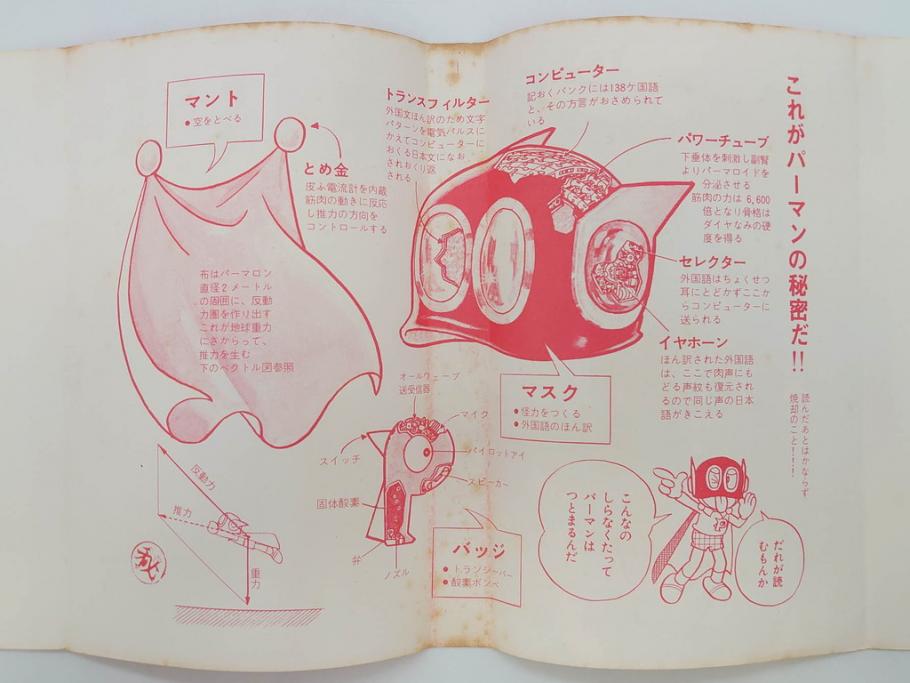 これがパーマンの秘密だ!!
読んだあとはかならず
焼却のこと!!!
コンピューター
記おくバンクには138ケ国語
と、その方言がおさめられて
いる
トランスフィルター
外国文ほん訳のため文字
パターンを電気パルスに
かえてコンピューターに
おくる日本文になお
されおくり返
される
パワーチューブ
下垂体を刺激し副腎
よりパーマロイドを
分泌させる
筋肉の力は6,600
倍となり骨格は
ダイヤなみの硬
度を得る
セレクター
外国語はちょくせつ
耳にとどかずここか
らコンピューターに
送られる
イヤホーン
ほん訳された外国語
は、ここで肉声にも
どる声紋も復元され
るので同じ声の日本
語がきこえる
マスク
●怪力をつくる
●外国語のほん訳
マント
●空をとべる
とめ金
皮ふ電流計を内蔵
筋肉の動きに反応
し推力の方向を
コントロールする
布はパーマロン
直径2メートル
の周囲に、反動
力圏を作り出す
これが地球重力
にさからって、
推力を生む
下のベクトル図参照
オールウェーブ
送受信器
マイク
パイロットアイ
スピーカー
スイッチ
固体酸素
弁
ノズル
バッジ
●トランシーバー
●酸素ボンベ
反動力
推力
重力
秘
こんなの
しらなくたって
パーマンは
つとまるんだ
だれが読
むもんか